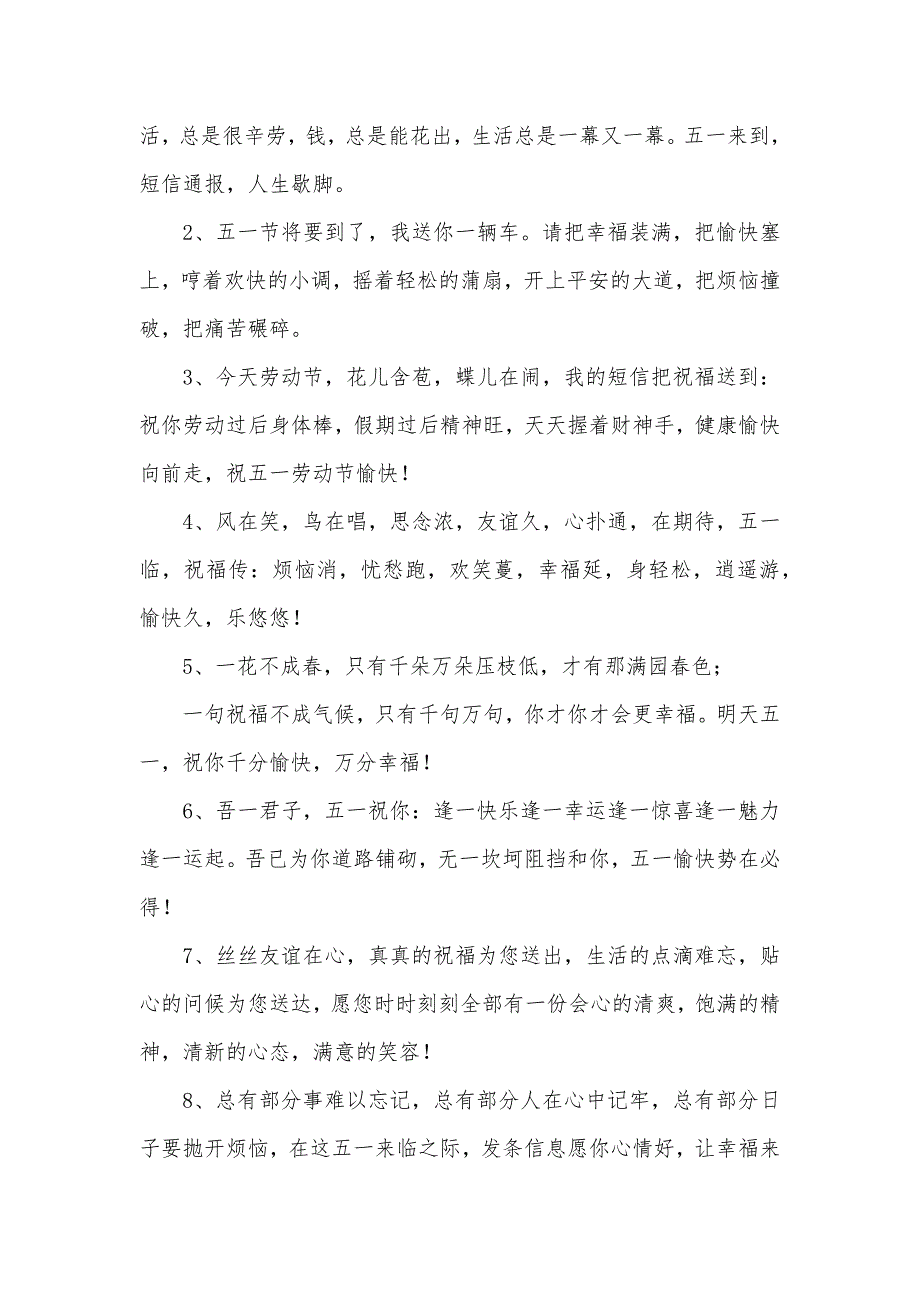 活，总是很辛劳，钱，总是能花出，生活总是一幕又一幕。五一来到，
短信通报，人生歇脚。
2、五一节将要到了，我送你一辆车。请把幸福装满，把愉快塞
上，哼着欢快的小调，摇着轻松的蒲扇，开上平安的大道，把烦恼撞
破，把痛苦碾碎。
3、今天劳动节，花儿含苞，蝶儿在闹，我的短信把祝福送到：
祝你劳动过后身体棒，假期过后精神旺，天天握着财神手，健康愉快
向前走，祝五一劳动节愉快！
4、风在笑，鸟在唱，思念浓，友谊久，心扑通，在期待，五一
临，祝福传：烦恼消，忧愁跑，欢笑蔓，幸福延，身轻松，逍遥游，
愉快久，乐悠悠！
5、一花不成春，只有千朵万朵压枝低，才有那满园春色；
一句祝福不成气候，只有千句万句，你才你才会更幸福。明天五
一，祝你千分愉快，万分幸福！
6、吾一君子，五一祝你：逢一快乐逢一幸运逢一惊喜逢一魅力
逢一运起。吾已为你道路铺砌，无一坎坷阻挡和你，五一愉快势在必
得！
7、丝丝友谊在心，真真的祝福为您送出，生活的点滴难忘，贴
心的问候为您送达，愿您时时刻刻全部有一份会心的清爽，饱满的精
神，清新的心态，满意的笑容！
8、总有部分事难以忘记，总有部分人在心中记牢，总有部分日
子要抛开烦恼，在这五一来临之际，发条信息愿你心情好，让幸福来